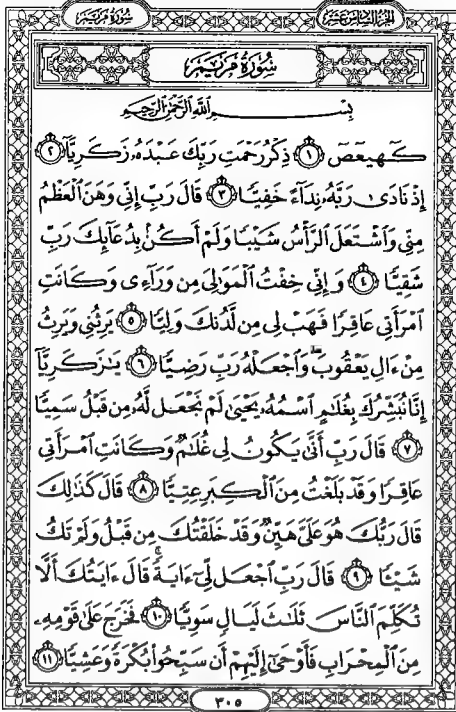 سُورَةُ مَرْيَمَ
الجزء السادس عشر
سُورَةُ مَرْيَمَ
بِسْمِ اللَّهِ الرَّحْمَٰنِ الرَّحِيمِ
كٓهيعٓصٓ ١ ذِكْرُ رَحْمَتِ رَبِّكَ عَبْدَهُۥ زَكَرِيَّآ ٢
إِذْ نَادَىٰ رَبَّهُۥ نِدَآءً خَفِيًّا ٣ قَالَ رَبِّ إِنِّي وَهَنَ ٱلْعَظْمُ
مِنِّي وَٱشْتَعَلَ ٱلرَّأْسُ شَيْبًا وَلَمْ أَكُنۢ بِدُعَآئِكَ رَبِّ
شَقِيًّا ٤ وَإِنِّي خِفْتُ ٱلْمَوَٰلِيَ مِن وَرَآءِي وَكَانَتِ
ٱمْرَأَتِي عَاقِرًا فَهَبْ لِي مِن لَّدُنكَ وَلِيًّا ٥ يَرِثُنِي وَيَرِثُ
مِنْ ءَالِ يَعْقُوبَ ۖ وَٱجْعَلْهُ رَبِّ رَضِيًّا ٦ يَٰزَكَرِيَّآ
إِنَّا نُبَشِّرُكَ بِغُلَٰمٍ ٱسْمُهُۥ يَحْيَىٰ لَمْ نَجْعَل لَّهُۥ مِن قَبْلُ سَمِيًّا
٧ قَالَ رَبِّ أَنَّىٰ يَكُونُ لِي غُلَٰمٌ وَكَانَتِ ٱمْرَأَتِي
عَاقِرًا وَقَدْ بَلَغْتُ مِنَ ٱلْكِبَرِ عِتِيًّا ٨ قَالَ كَذَٰلِكَ
قَالَ رَبُّكَ هُوَ عَلَيَّ هَيِّنٌ وَقَدْ خَلَقْتُكَ مِن قَبْلُ وَلَمْ تَكُ
شَيْـًٔا ٩ قَالَ رَبِّ ٱجْعَل لِّيٓ ءَايَةً ۚ قَالَ ءَايَتُكَ أَلَّا
تُكَلِّمَ ٱلنَّاسَ ثَلَٰثَ لَيَالٍ سَوِيًّا ١٠ فَخَرَجَ عَلَىٰ قَوْمِهِۦ
مِنَ ٱلْمِحْرَابِ فَأَوْحَىٰٓ إِلَيْهِمْ أَن سَبِّحُوا۟ بُكْرَةً وَعَشِيًّا ١١
٣٠٥